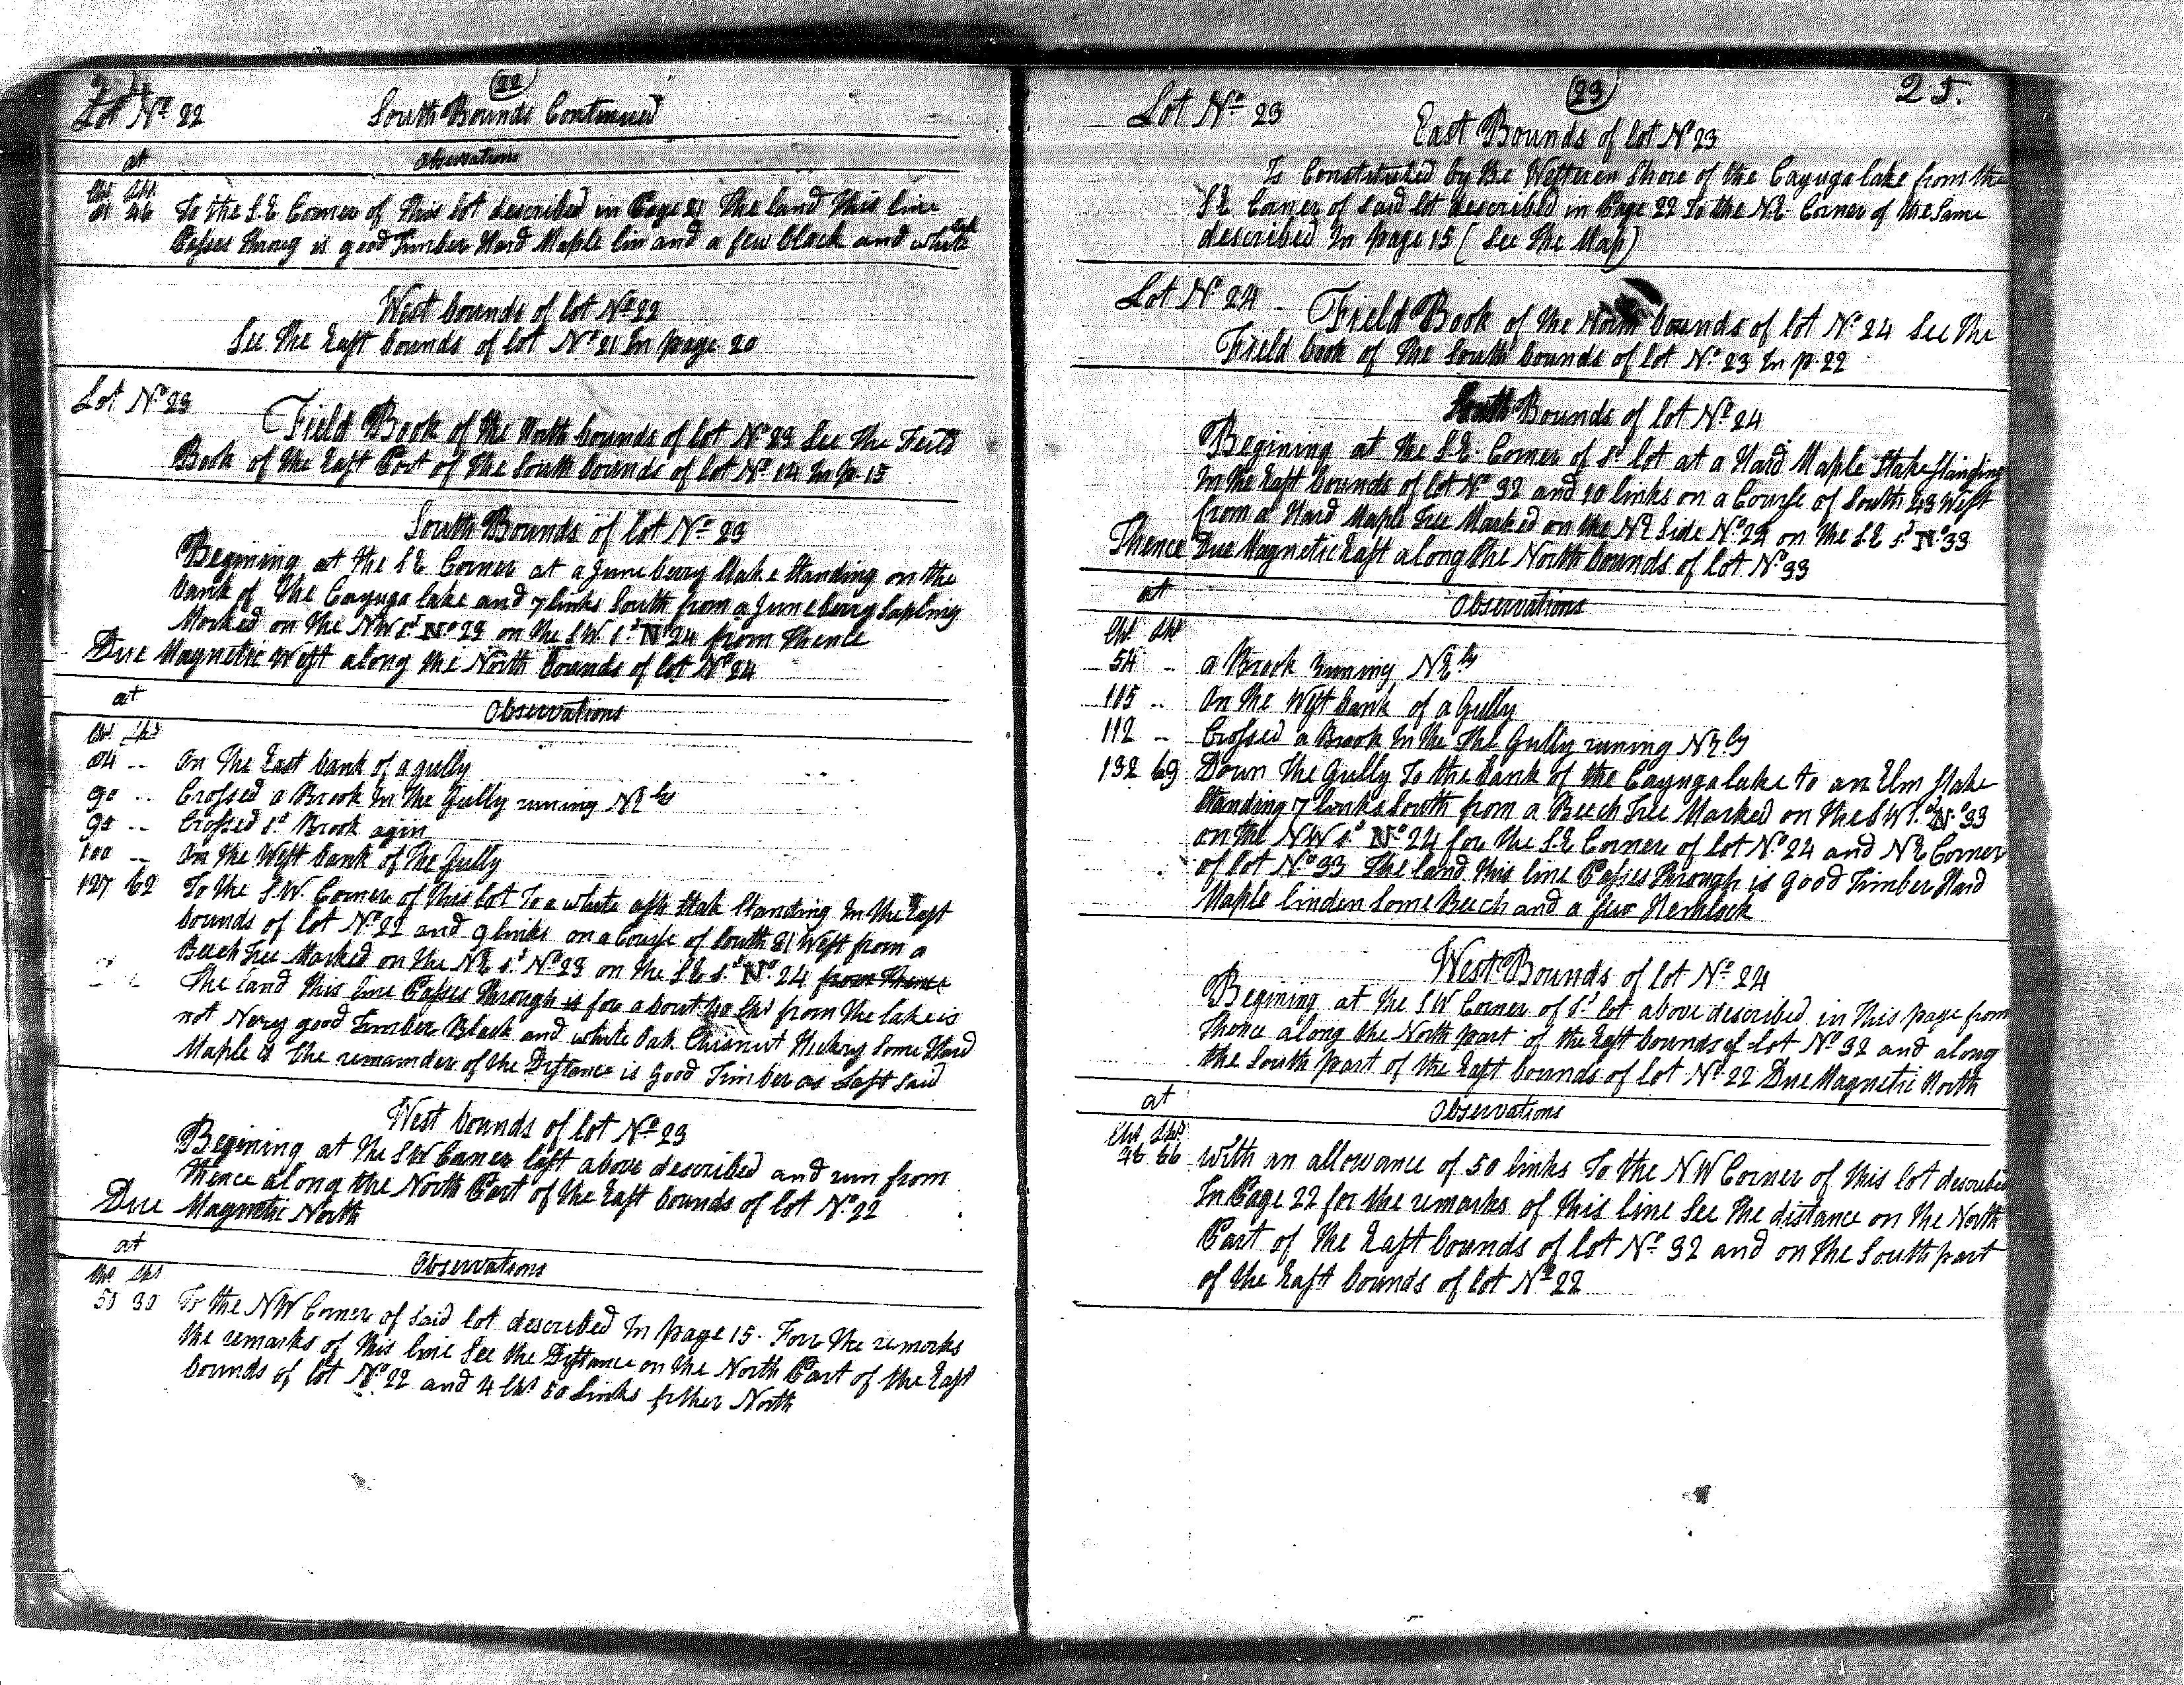 24
(22)
Lot No 22 South Bounds Continued
at Observations
Chs Lks
81 46 To the S.E Corner of this lot described in Page 21 The land this line
Passes throug is good Timber Hard Maple lin and a few black and white oak
West bounds of lot No 22
See the East bounds of lot No 21 In page 20
Lot No 23
Field Book of the North bounds of lot No 23 See the Feild
Book of the East Part of the South bounds of lot No 14 In p. 15
South Bounds of lot No 23
Begining at the S E Corner at a Juneberry Stake Standing on the
bank of the Cayuga lake and 7 links South from a Juneberry Sapling
Marked on the NW sd No 23 on the S.W. sd No 24 from Thence
Due Magnetic West along the North bounds of lot No 24
at Observations
Chs Lks
84 .. On the East bank of a gully
90 .. Crossed a Brook In the Gully runing NEly
98 .. Crossed sd Brook agin
100 .. On the West bank of the Gully
127 62 To the S.W. Corner of this lot To a white ash Stak Standing In the East
bounds of lot No 22 and 9 links on a Course of South 81 West from a
Beech Tree Marked on the NE sd No 23 on the S E sd No 24 from Thence
The land this line Passes through is for about 40 Chs from the lake is
not Very good Timber Black and white Oak Chesnut Hickery Some Hard
Maple & the remainder of the Distance is Good Timber as Last Said
West bounds of lot No 23
Begining at the SW Corner last above described and run from
thence along the North Part of the East bounds of lot No 22
Due Magnetic North
at Observations
Chs Lks
50 30 To the NW Corner of Said lot described In page 15. For the remarks
the remarks of this line See the Distance on the North Part of the East
bounds of lot No 22 and 4 Chs 50 Links frther North
(23)
25.
Lot No 23
East Bounds of lot No 23
Is Constituted by the Westeren Shore of the Cayuga lake from the
S E Corner of Said lot described in Page 22 To the N.E. Corner of the Same
described In page 15 (See the Map)
Lot No 24
Field Book of the North bounds of lot No 24 See the
Field book of the South bounds of lot No 23 In p. 22
South Bounds of lot No 24
Begining at the S.E. Corner of sd lot at a Hard Maple Stake Standing
In the East bounds of lot No 32 and 10 links on a Course of South 43 West
from a Hard Maple Tree Marked on the NE Side No 24 on the S E sd No 33
Thence Due Magnetic East along the North bounds of lot No 33
at Observations
Chs Lks
54 .. a Brook runing NEly
105 .. On the West bank of a Gully
112 .. Crossed a Brook In the The Gully runing NEly
132 69 Down the Gully To the bank of the Cayuga lake to an Elm Stake
Standing 7 links South from a Beech Tree Marked on the S W sd No 33
on the NW sd No 24 for the S E Corner of lot No 24 and N E Corner
of lot No 33 The land this line Passes through is good Timber Hard
Maple linden Some Beech and a few Hemlock
West Bounds of lot No 24
Begining at the SW Corner of sd lot above described in this page from
Thence along the North part of the East bounds of lot No 32 and along
the South part of the East bounds of lot No 22 Due Magnetic North
at Observations
Chs Lks
46 66 With an allowance of 50 links To the N W Corner of this lot described
In Page 22 for the remarks of this line See the distance on the North
Part of the East bounds of lot No 32 and on the South part
of the East bounds of lot No 22